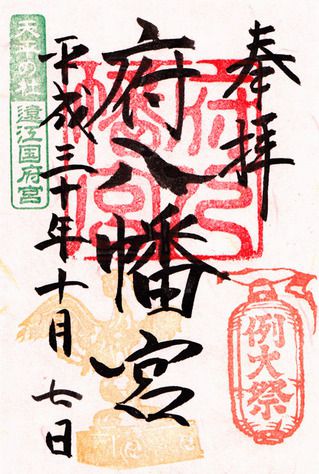 奉拝
例大祭
府八幡宮
府八幡宮
平成三十年十月七日
天平の社
遠江国府宮